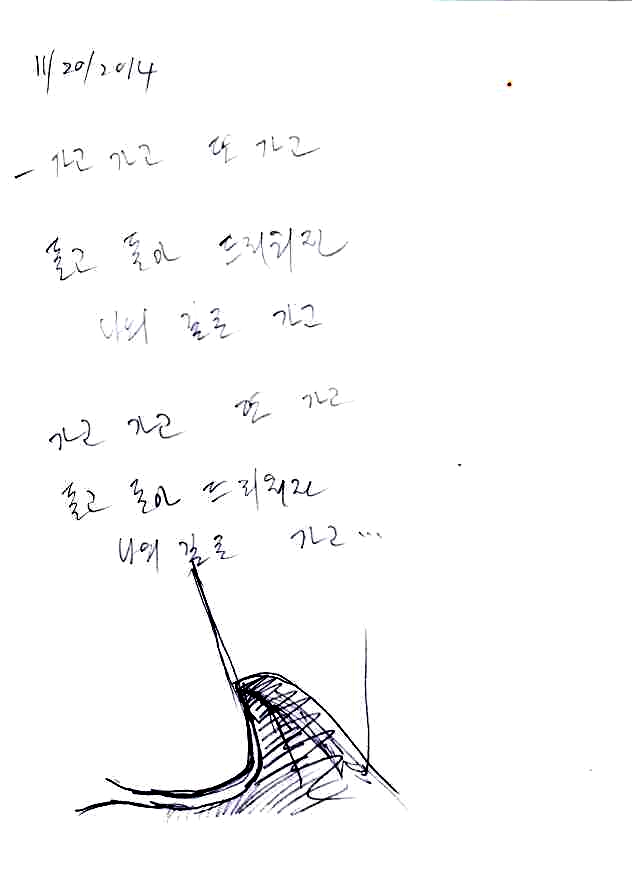 11/20/2014
- 가고 가고 또 가고
돌고 돌아 드리워진
나의 길로 가고
가고 가고 또 가고
돌고 돌아 드리워진
나의 길로 가고...